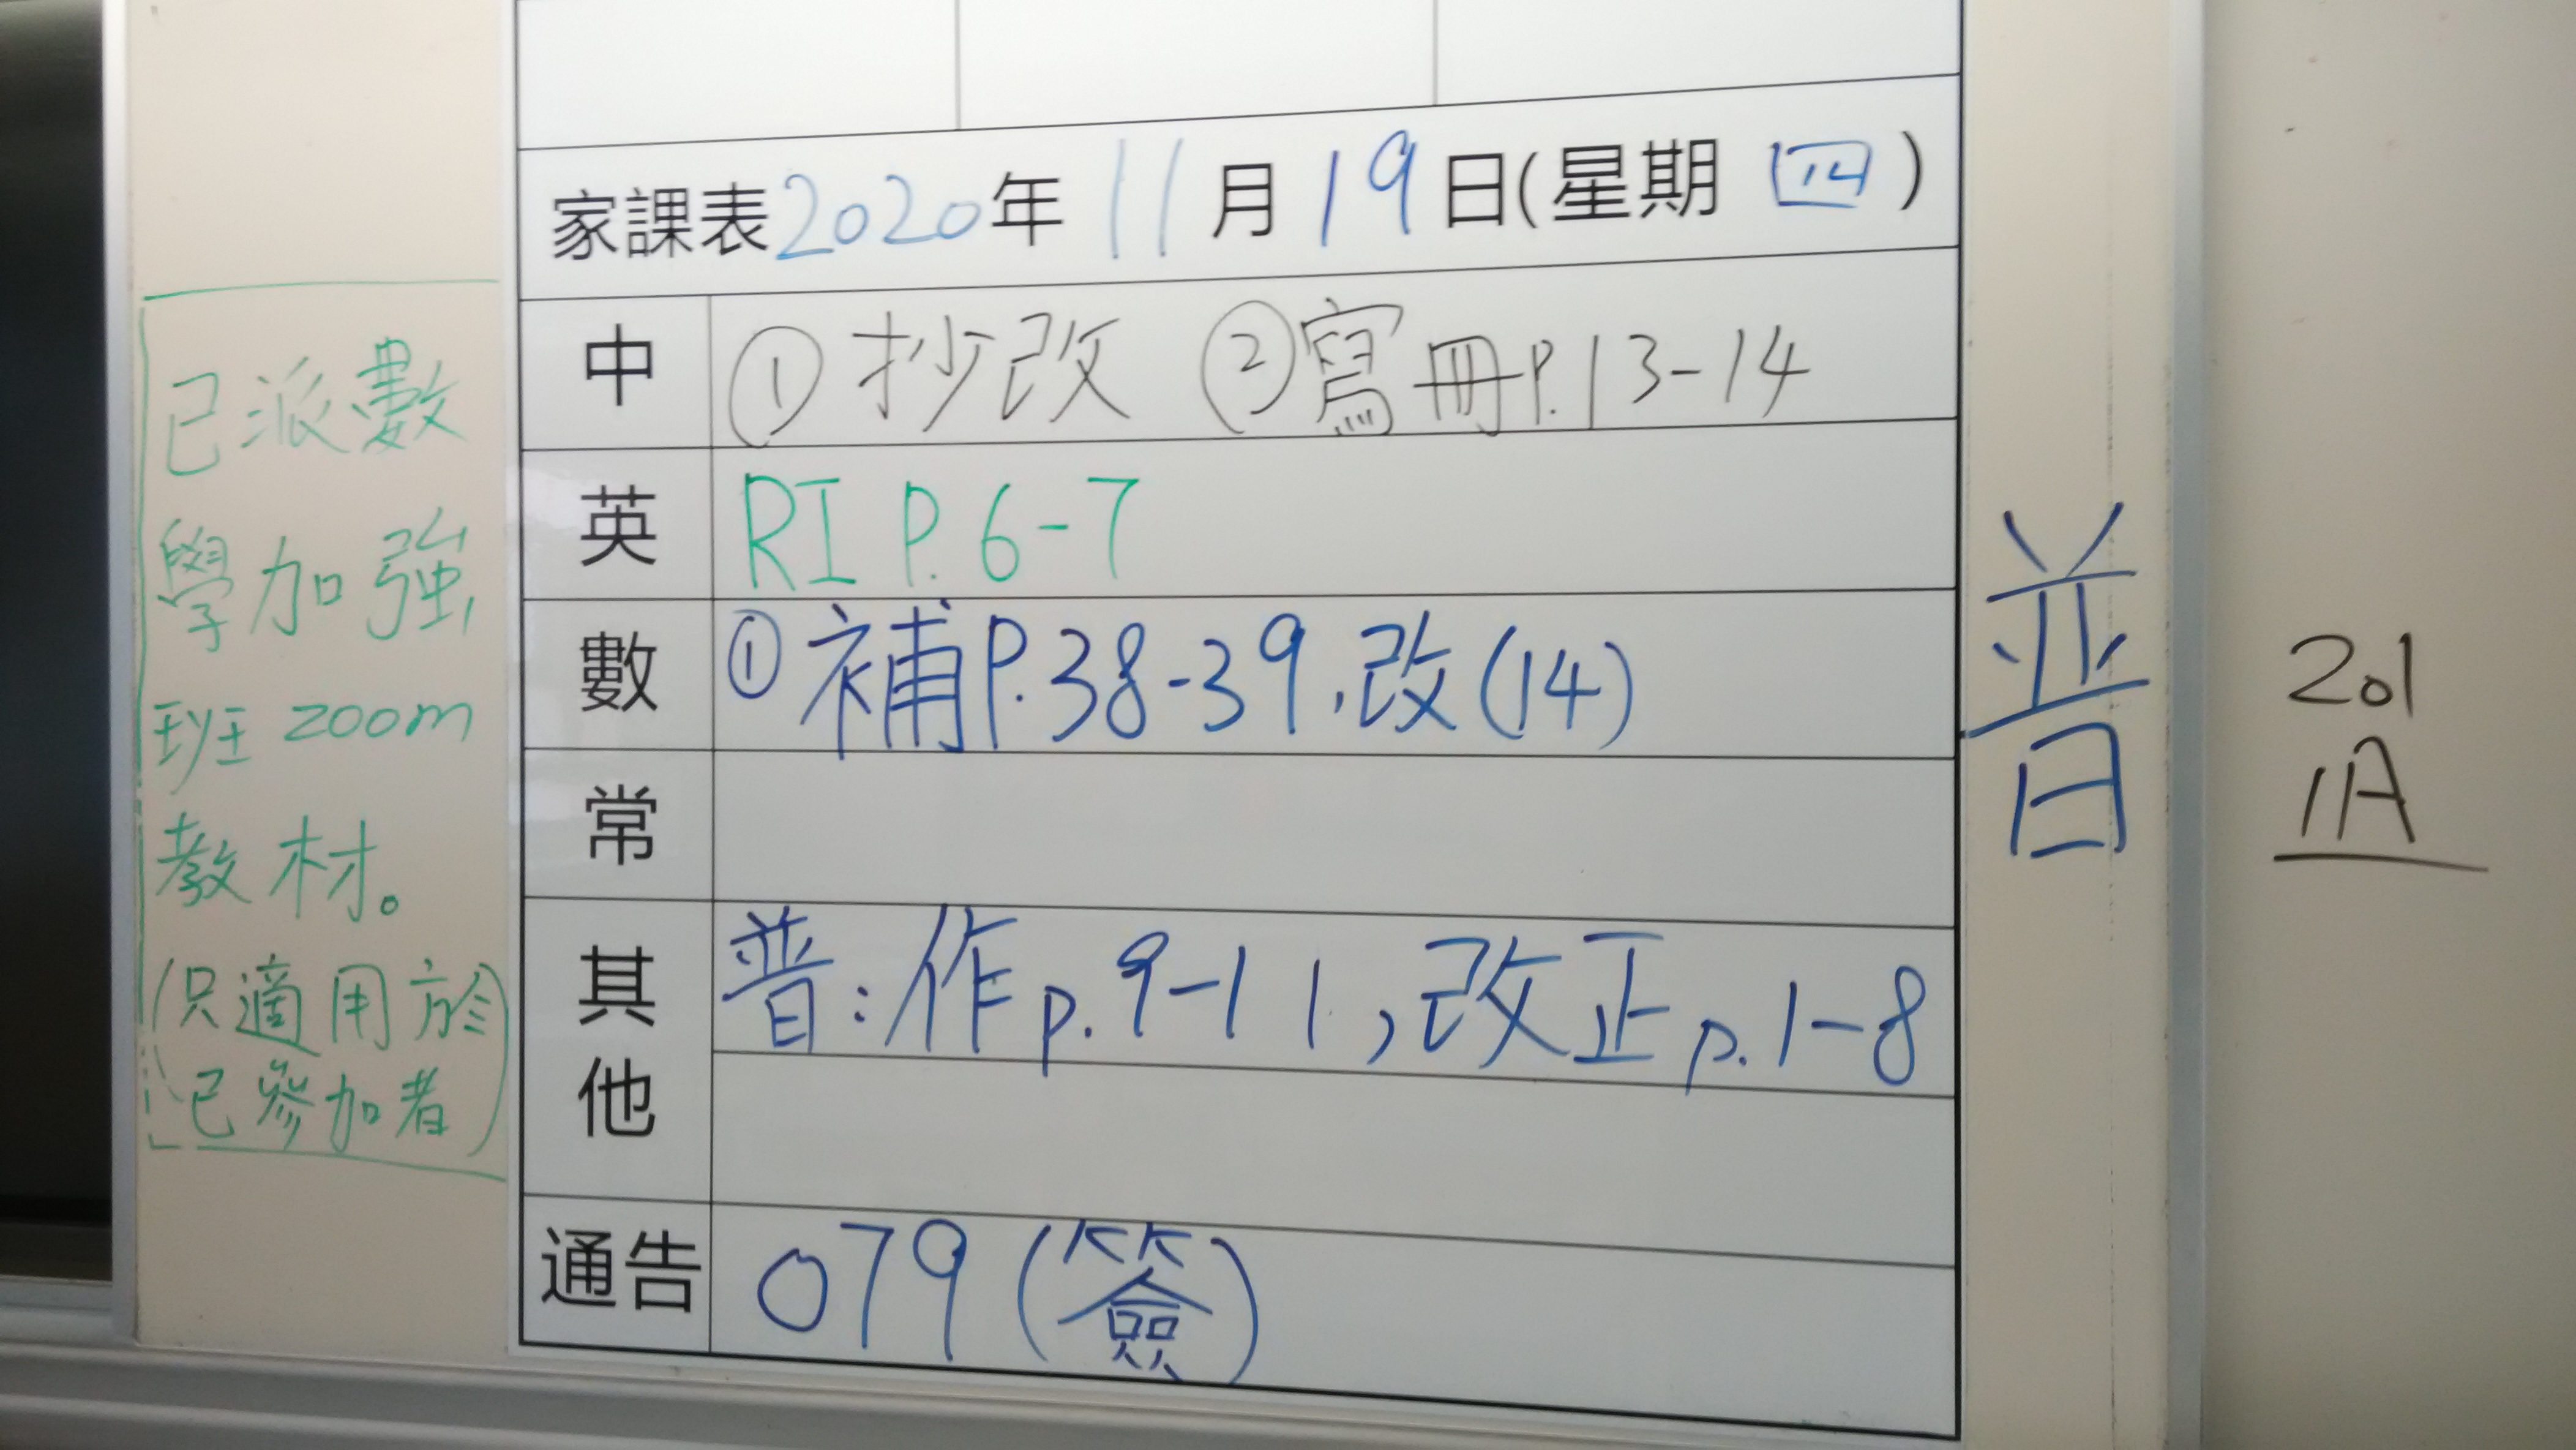 家課表2020年11月19日(星期四)
中 ①抄改 ②寫冊P.13-14
英 RI P.6-7
數 ①補P.38-39,改(14)
常
其他 普:作p.9-11,改正p.1-8
通告 079(簽)
已派數
學加強
班zoom
教材。
(只適用於
已參加者)
普
201
1A